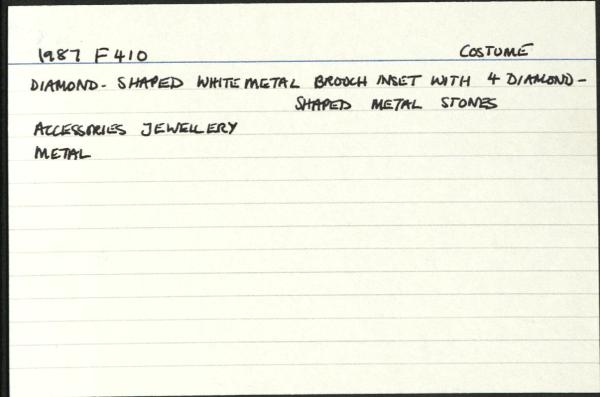 1987 F410 COSTUME
DIAMOND-SHAPED WHITE METAL BROOCH INSET WITH 4 DIAMOND-
SHAPED METAL STONES
ACCESSORIES JEWELLERY
METAL